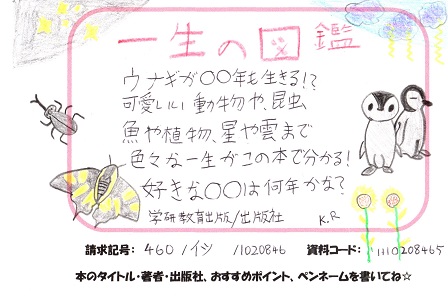 一生の図鑑
ウナギが〇〇年も生きる!?
可愛いい動物や、昆虫
魚や植物、星や雲まで
色々な一生がこの本で分かる!
好きな〇〇は何年かな?
学研教育出版/出版社 K.R
請求記号: 460/イシ /1020846 資料コード: 1110208465
本のタイトル・著者・出版社、おすすめポイント、ペンネームを書いてね☆